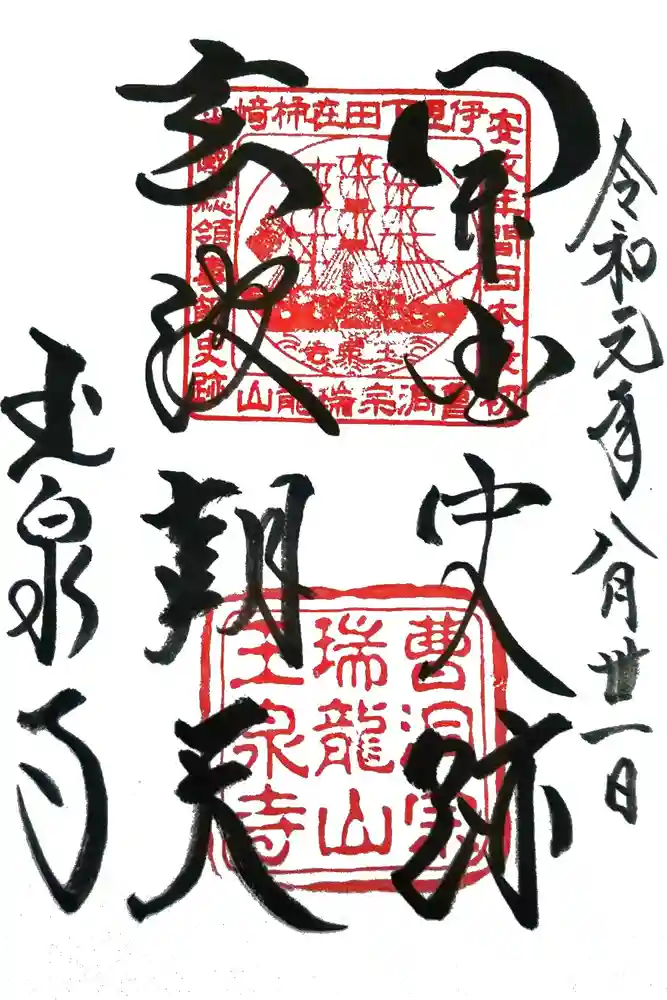 令和元年八月卅一日
開国史跡
朝天
玉泉寺
安政年間日本最初
伊豆下田在柿崎
米国総領事館史跡
曹洞宗瑞龍山
曹洞宗
瑞龍山
玉泉寺